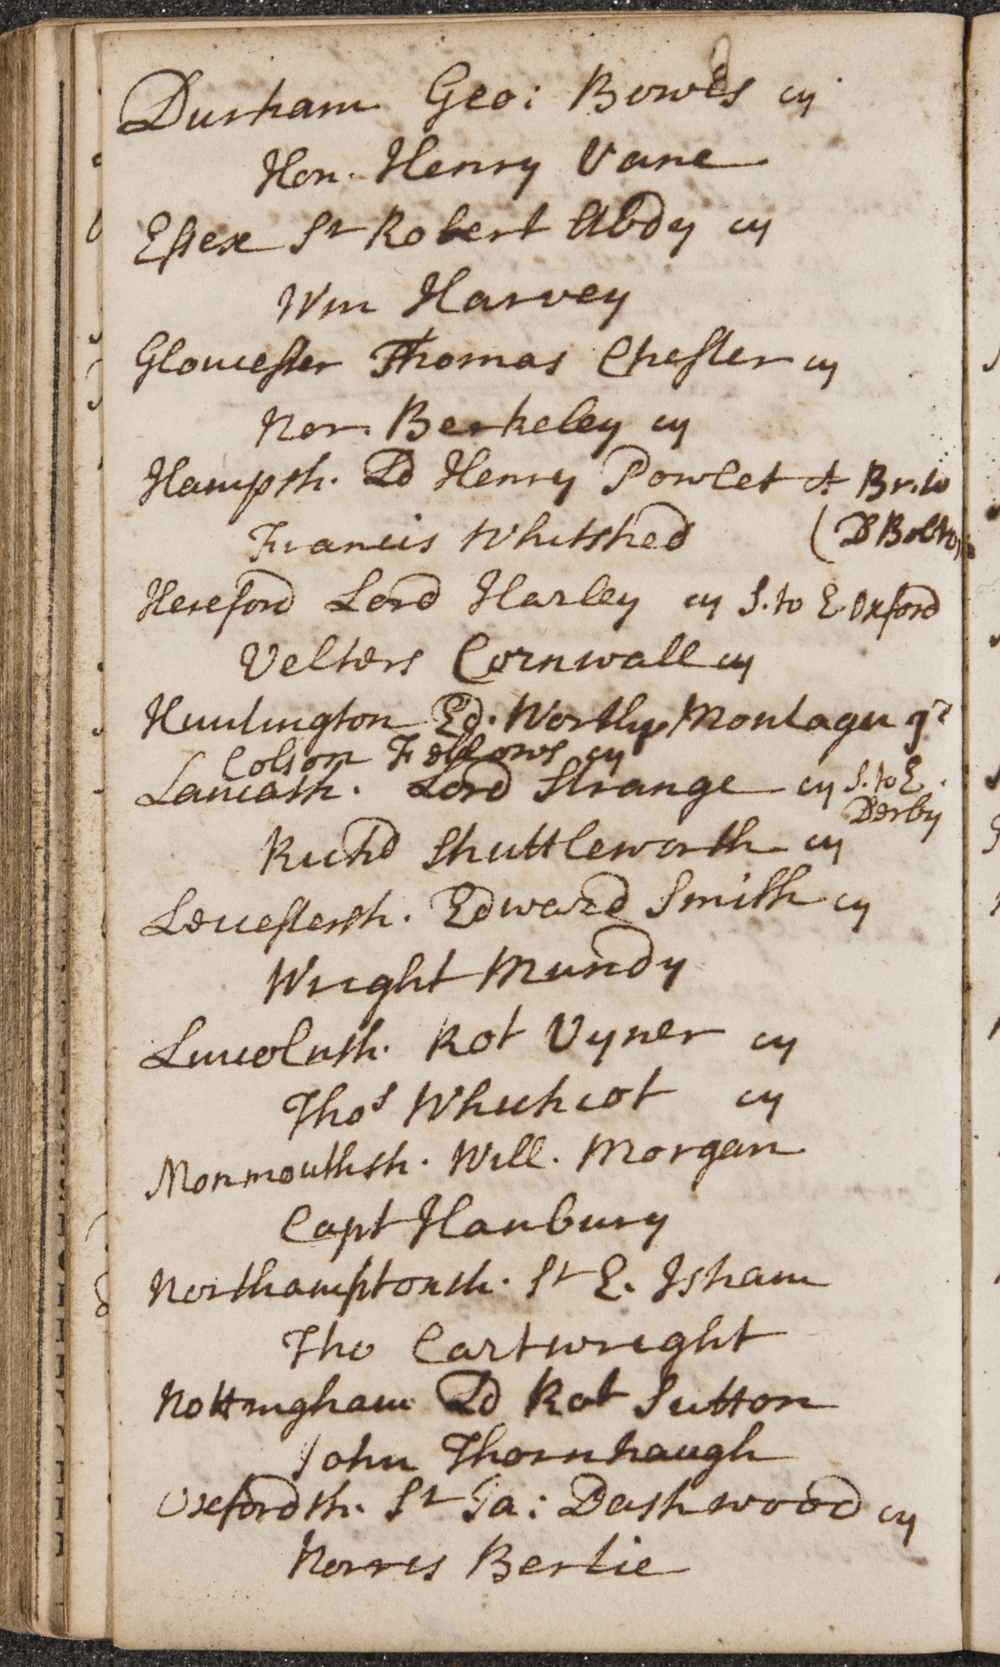 Durham Geo: Bowes cy
Hon. Henry Vane
Essex Sr Robert Abdy cy
Wm Harvey
Gloucester Thomas Chester cy
Nor. Berkeley cy
Hampsh. Ld Henry Powlet A Br. to
Francis Whitshed (D Bolton
Hereford Lord Harley cy S. to E Oxford
Velters Cornwall cy
Huntington Ed. Wortly Montagu
Colson Fellows cy
Lancash. Lord Strange cy S. to E.
Derby
Richd Shuttleworth cy
Leicestersh. Edward Smith cy
Wright Mundy
Lincolnsh. Rot Vyner cy
Thos Whichcot cy
Monmouthsh. Will. Morgan
Capt Hanbury
Northamptonsh. Sr E. Isham
Tho Cartwright
Nottingham Ld Rob Sutton
John Thornhaugh
Oxfordsh. Sr Ja: Dashwood cy
Norris Bertie